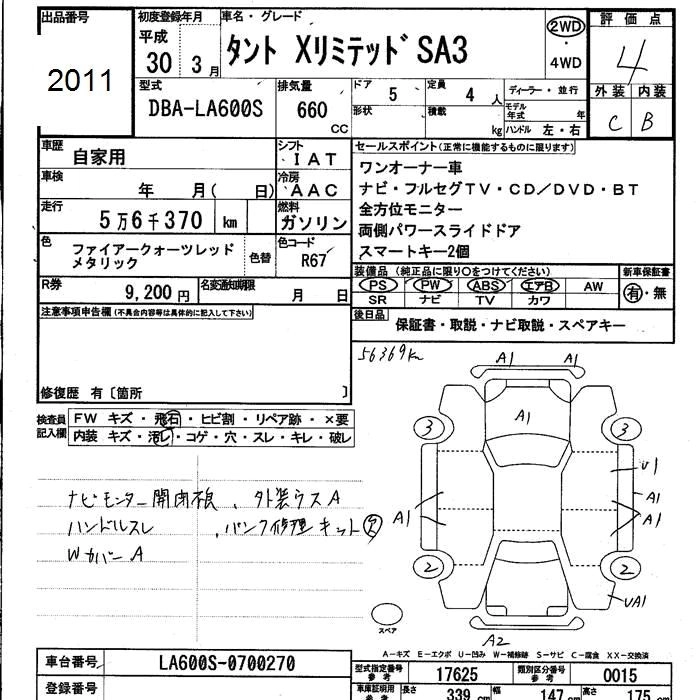 出品番号
2011
初度登録年月
平成
30 3月
車名・グレード
タント XリミテッドSA3
2WD
・
4WD
評価点
4
外装 内装
C B
型式
DBA-LA600S
排気量
660
CC
ドア 5
形状
定員 4 人
積載 kg
ディーラー・並行
モデル年式 年
ハンドル 左・右
車歴
自家用
シフト
IAT
車検
年 月( 日)
冷房
AAC
走行
5万6千370 km
燃料
ガソリン
色
ファイアークォーツレッド
メタリック
色替
色コード
R67
セールスポイント(正常に機能するものに限ります)
ワンオーナー車
ナビ・フルセグTV・CD/DVD・BT
全方位モニター
両側パワースライドドア
スマートキー2個
装備品 (純正品に限り○をつけてください)
PS PW ABS エアB AW
SR ナビ TV カワ
新車保証書
有・無
R券
9,200円
名変通知期限
月 日
後日品
保証書・取説・ナビ取説・スペアキー
注意事項申告欄(不具合内容等は具体的に記入して下さい)
修復歴 有〔箇所 〕
56369km
検査員
記入欄
FW キズ・飛石・ヒビ割・リペア跡・×要
内装 キズ・汚レ・コゲ・穴・スレ・キレ・破レ
ナビモニター開閉板、外装ウスA
ハンドルスレ、パンク修理キット欠
WカバーA
A1 A1
A1
3 3
U1
A1
A1 A1
2 2
UA1
A2
スペア
A-キズ E-エクボ U-凹み W-補修跡 S-サビ C-腐食 XX-交換済
車台番号
LA600S-0700270
登録番号
型式指定番号
参考
17625
類別区分番号
参考
0015
車庫証明用
参考
長さ 339 cm 幅 147 cm 高さ 175 cm